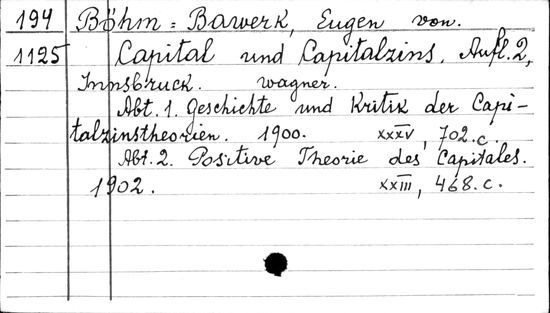 194 Böhm=Bawerk, Eugen von.
1125 Capital und Capitalzins. Aufl. 2,
Innsbruck. Wagner.
Abt. 1. Geschichte und Kritik der Capi-
talzinstheorien. 1900. XXXV, 702.c.
Abt. 2. Positive Theorie des Capitales.
1902. XXIII, 468.c.